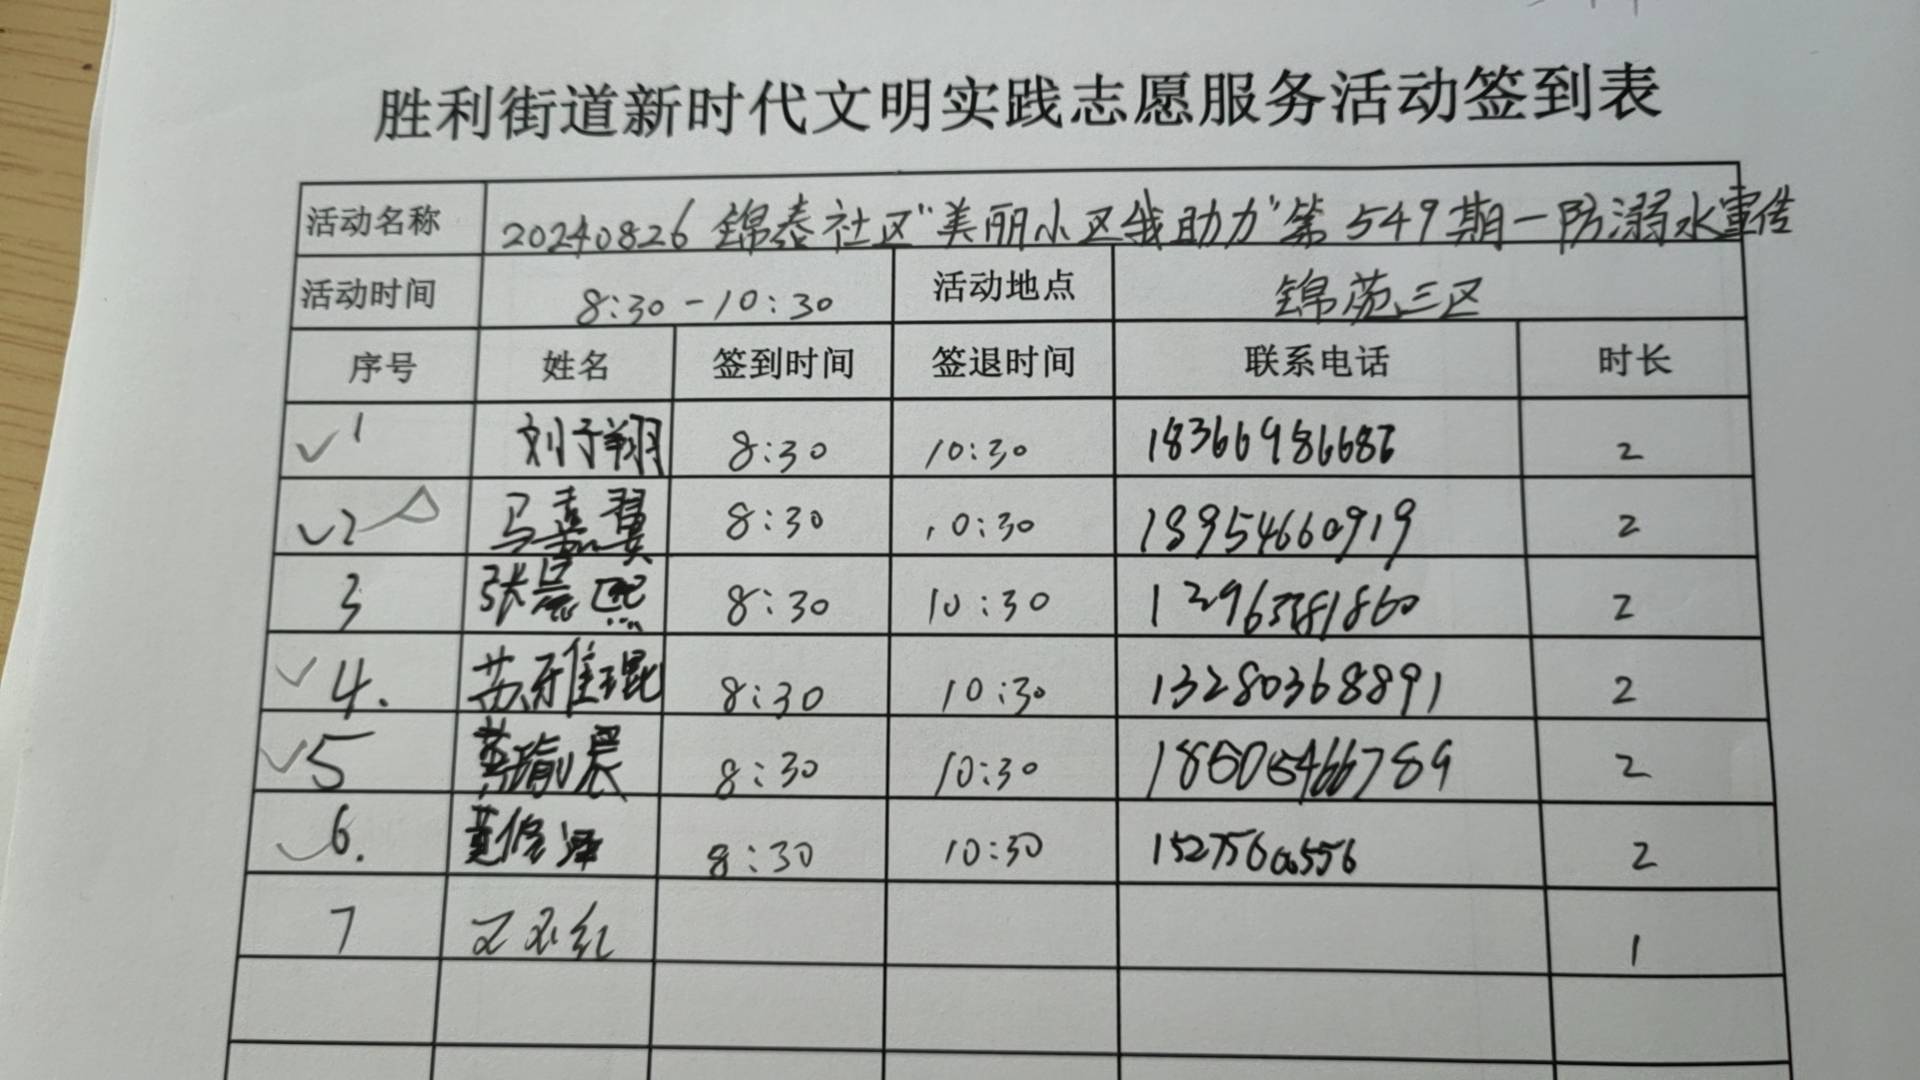 胜利街道新时代文明实践志愿服务活动签到表
活动名称 20240826锦泰社区"美丽小区我助力"第549期一防溺水宣传
活动时间 8:30-10:30 活动地点 锦苑三区
序号 姓名 签到时间 签退时间 联系电话 时长
1 刘子翔 8:30 10:30 18366986686 2
2 马嘉翼 8:30 10:30 18954660919 2
3 张景熙 8:30 10:30 2
4. 苏雅琨 8:30 10:30 13280368891 2
5 瑜晨 8:30 10:30 18605466789 2
6. 黄修泽 8:30 10:30 15275600556 2
7 红 1